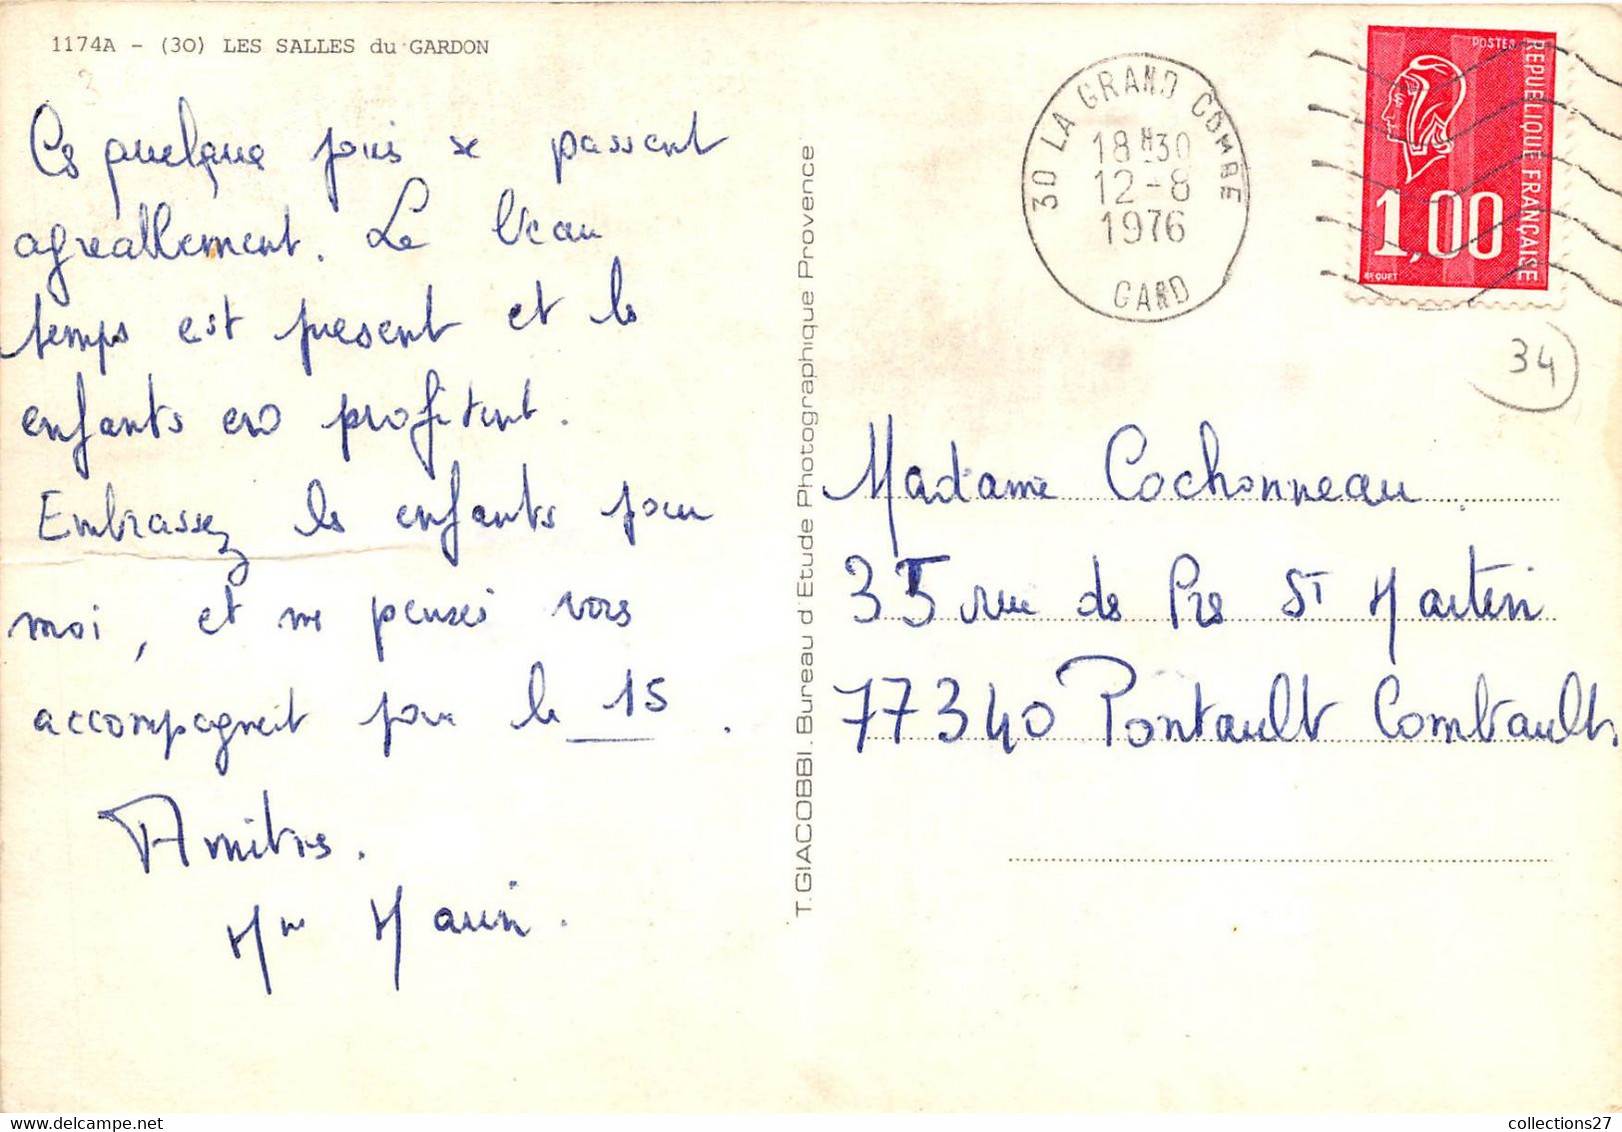 1174A - (30) LES SALLES du GARDON
Ce quelque jours se passent
agreablement. Le beau
temps est present et le
enfants en profitent.
Embrassez les enfants pour
moi, et me pensés vous
accompagneit pour le 15.
Amitiés.
Mme Marin.
T. GIACOBBI. Bureau d'Etude Photographique Provence
30 LA GRAND COMBE
18H30
12-8
1976
GARD
POSTES
REPUBLIQUE FRANÇAISE
1,00
BEQUET
34
Madame Cochonneau
35 rue de Pre ST Martin
77340 Pontault Combault
collections27